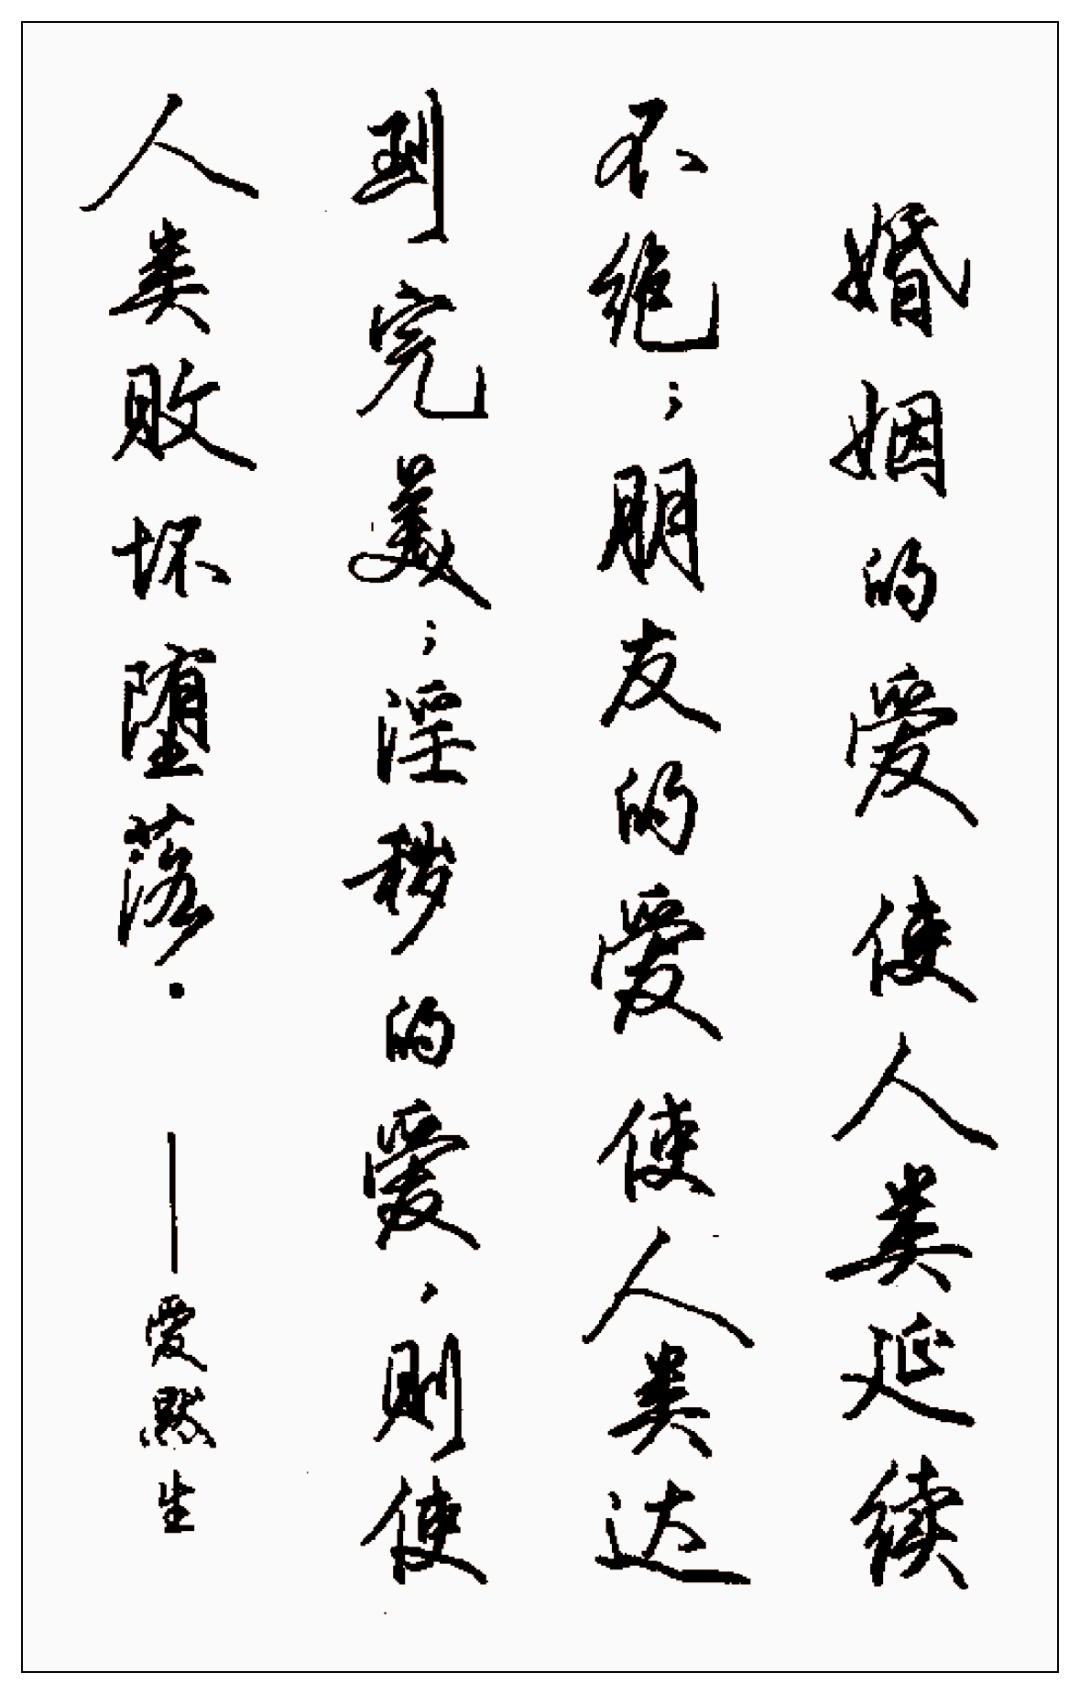 婚姻的爱使人类延续
不绝；朋友的爱使人类达
到完美；淫秽的爱，则使
人类败坏堕落．——爱默生